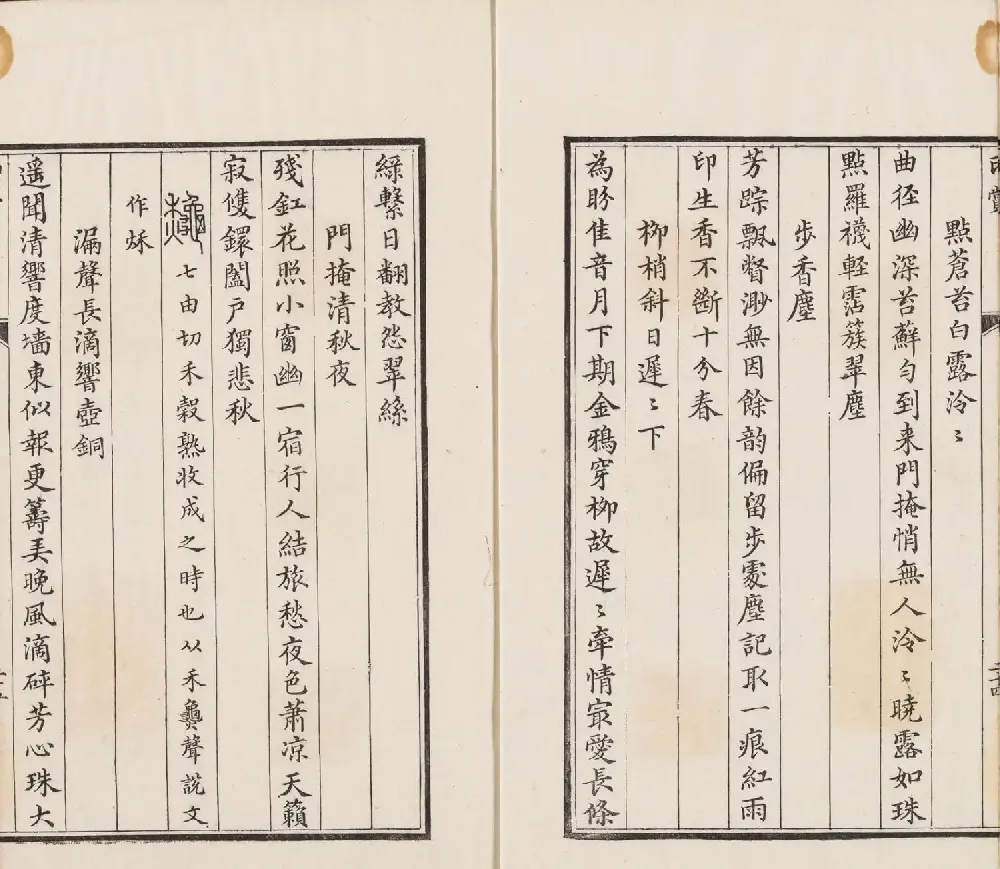 點蒼苔白露泠〻
曲径幽深苔蘚勻到来門掩悄無人泠〻曉露如珠
點羅襪軽霑簇翠塵
步香塵
芳踪飄瞥渺無因餘韵偏留步處塵記取一痕紅雨
印生香不斷十分春
柳梢斜日遲〻下
為盼佳音月下期金鴉穿柳故遲〻牽情冣愛長條
綠繫日翻教怨翠絲
門掩清秋夜
殘釭花照小窗幽一宿行人結旅愁夜色蕭凉天籟
寂隻鐶闔戶獨悲秋
七由切禾穀熟收成之時也从禾𤒅聲說文
作秌
漏聲長滴響壺銅
遥聞清響度墻東似報更籌弄晚風滴碎芳心珠大